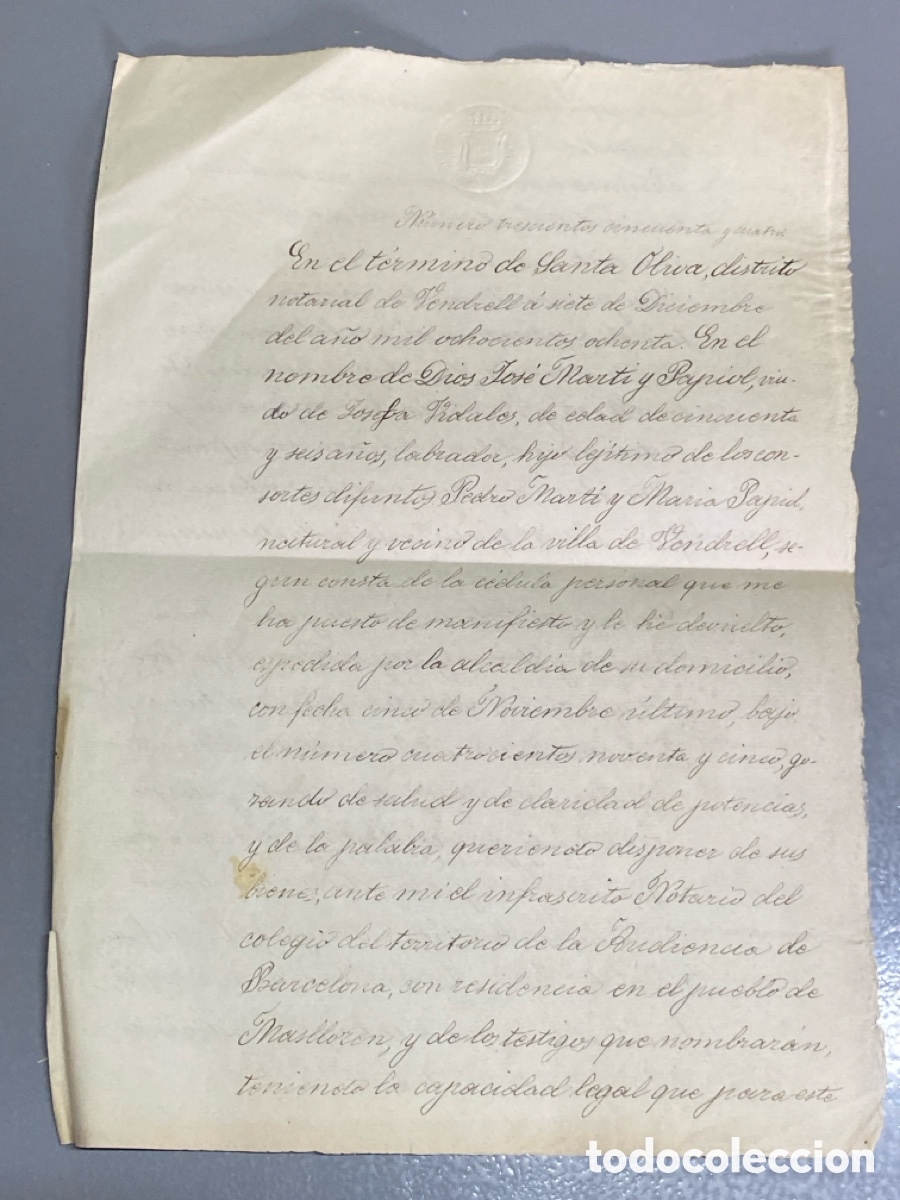 Número trescientos cincuenta y cuatro
En el término de Santa Oliva, distrito
notarial de Vendrell á siete de Diciembre
del año mil ochocientos ochenta. En el
nombre de Dios José Martí y Papiol, viu-
do de Josefa Vidales, de edad de cincuenta
y seis años, labrador, hijo lejítimo de los con-
sortes difuntos Pedro Martí y Maria Papiol,
natural y vecino de la villa de Vendrell, se-
gun consta de la cédula personal que me
ha puesto de manifiesto y le hé devuelto,
espedida por la alcaldía de su domicilio,
con fecha cinco de Noviembre último, bajo
el número cuatrocientos noventa y cinco, go-
zando de salud y de claridad de potencias,
y de la palabra, queriendo disponer de sus
bienes, ante mi el infrascrito Notario del
colegio del territorio de la Audiencia de
Barcelona, con residencia en el pueblo de
Maslloren, y de los testigos que nombrarán,
teniendo la capacidad legal que para este
todocoleccion.net